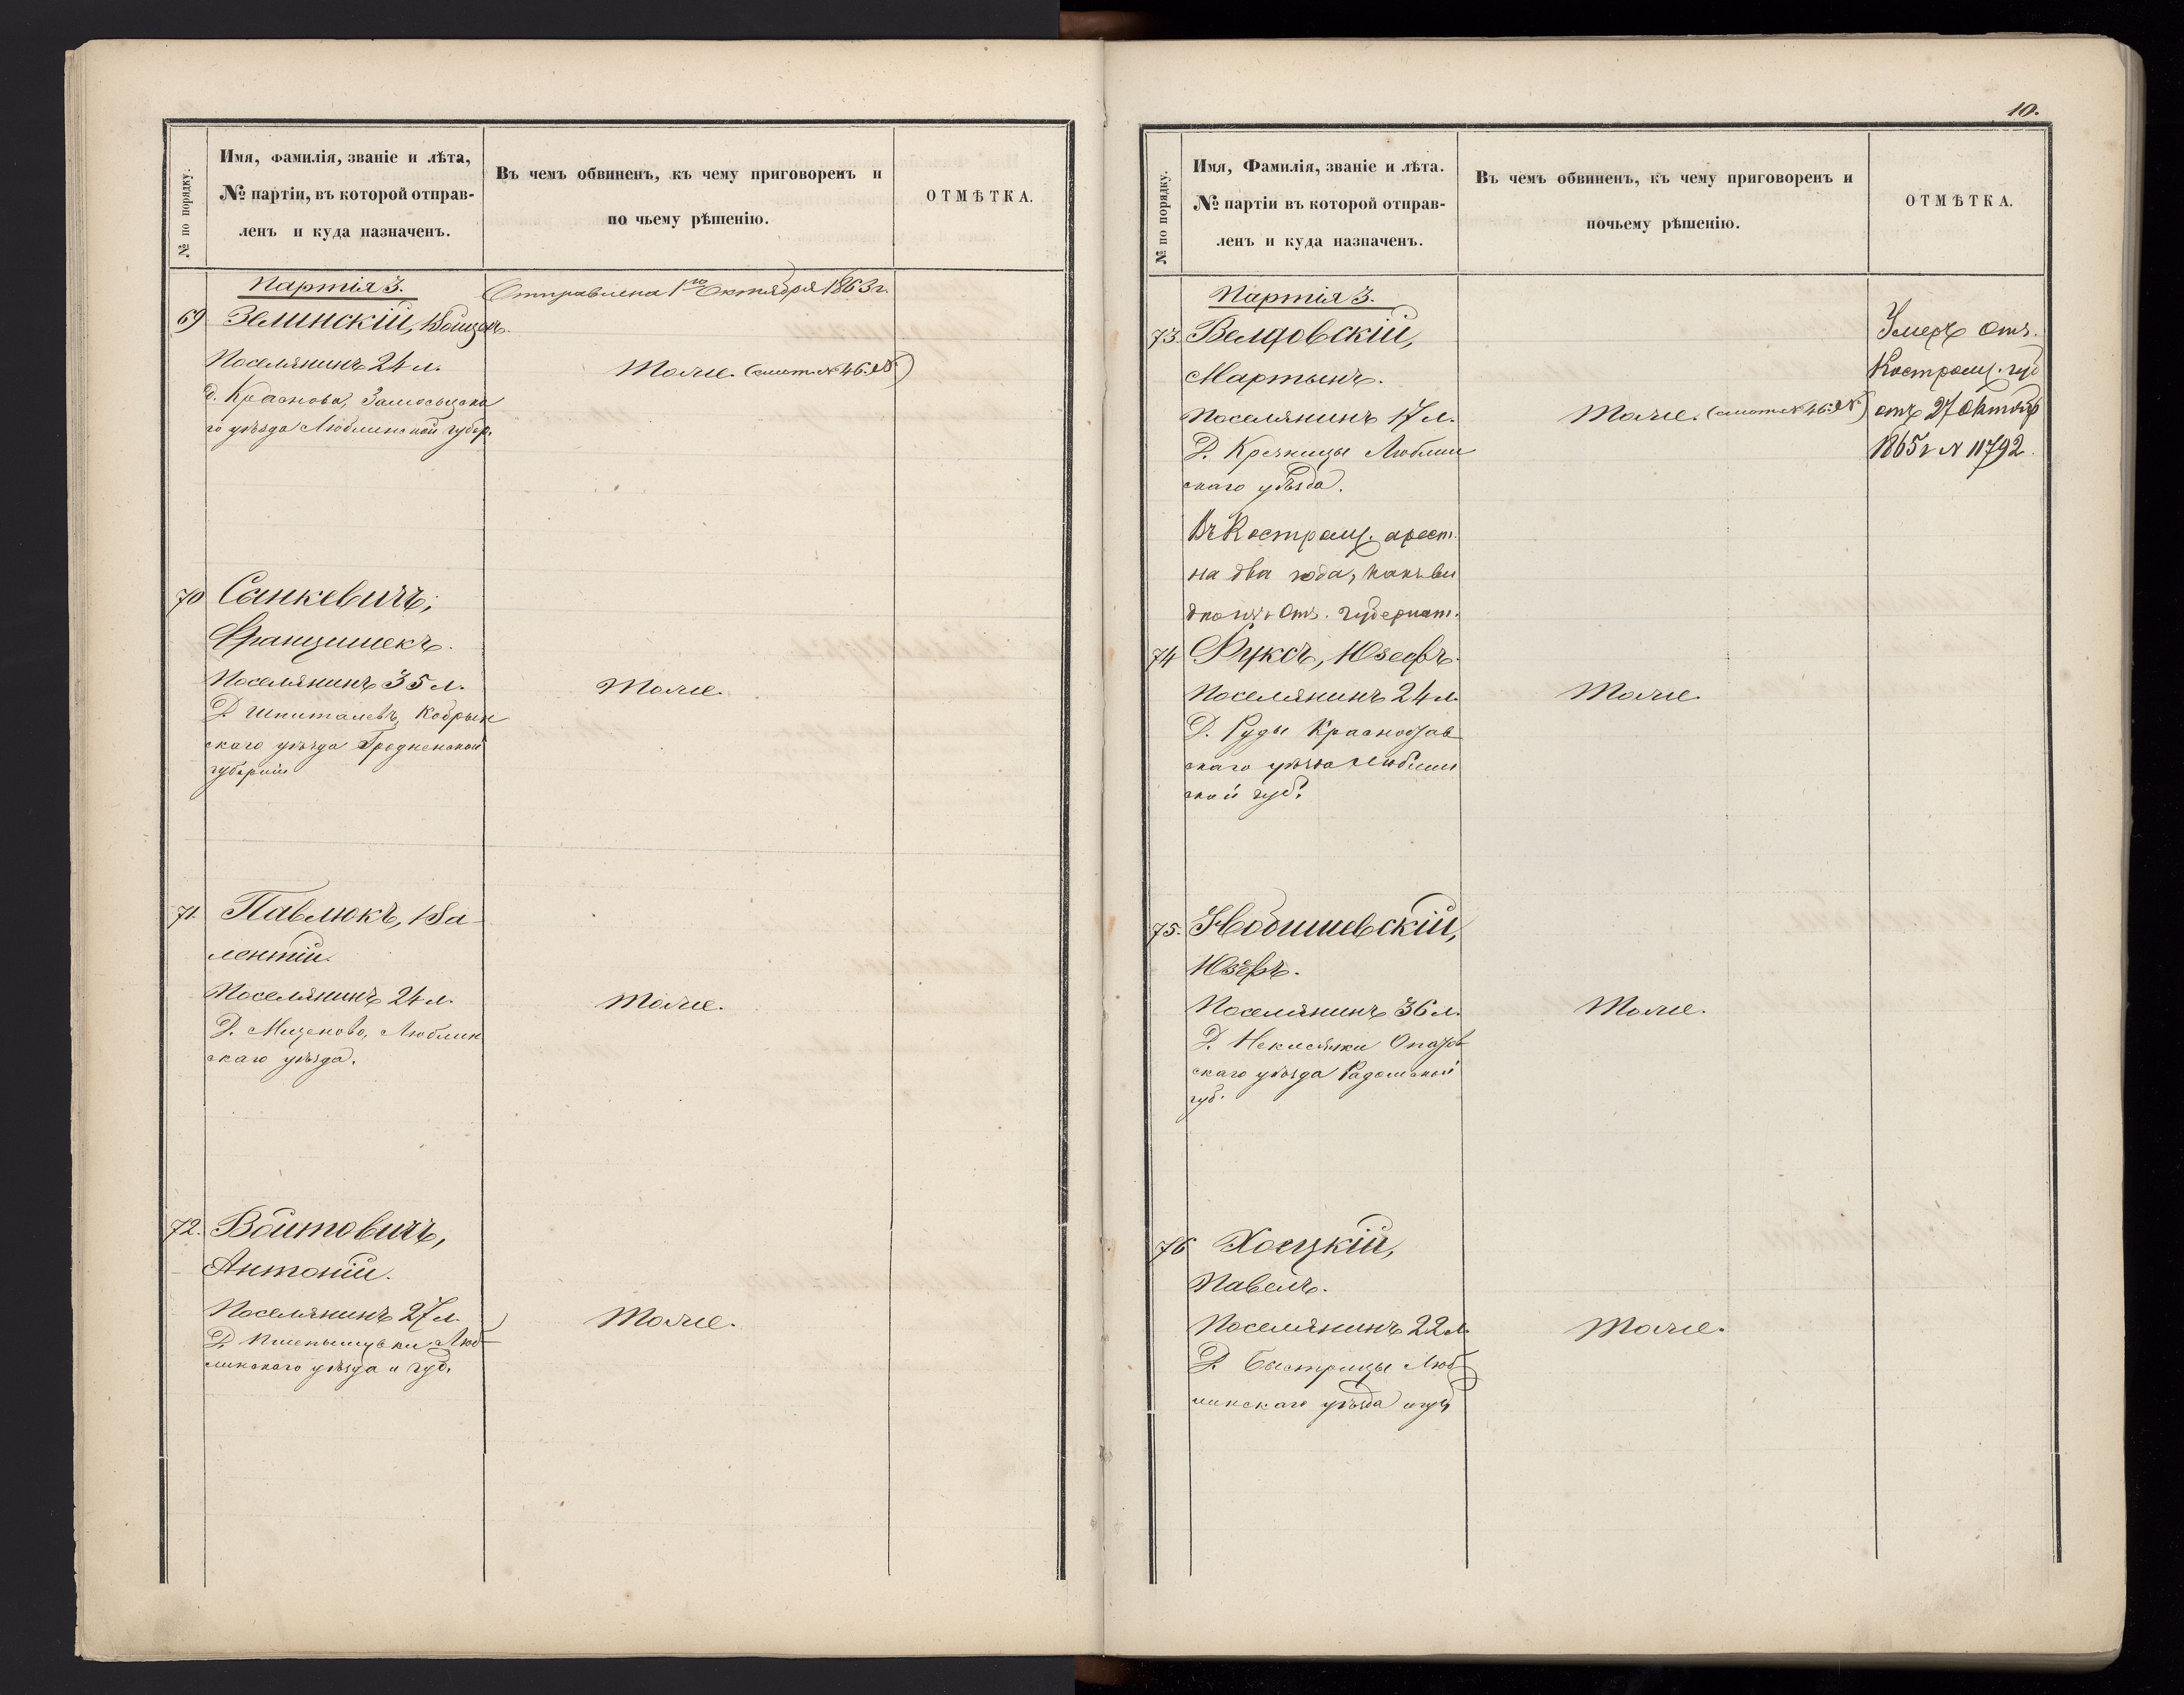 № по порядку.
Имя, Фамилія, званіе и лѣта,
№ партіи, въ которой отправ-
ленъ и куда назначенъ.
Въ чемъ обвиненъ, къ чему приговоренъ и
по чьему рѣшенію.
ОТМѢТКА.
Партія 3.
Отправлена 1го Октября 1863 г.
69 Зелинскій, Войцехъ.
Поселянинъ 24 л.
д. Краснова, Замосьцска
го уѣзда Люблинской губер.
Тоже. (смот. № 46.й)
70 Санкевичъ,
Францишекъ.
Поселянинъ 35 л.
Д. Шпиталевъ, Кобрын
скаго уѣзда Гродненской
губерніи
Тоже.
71. Павлюкъ, Ва-
лентій.
Поселянинъ 24 л.
Д. Маценова, Люблин
скаго уѣзда.
Тоже.
72. Войтовичъ,
Антоній.
Поселянинъ 27 л.
Д. Люб-
линскаго уѣзда и губ.
Тоже.
10.
№ по порядку.
Имя, Фамилія, званіе и лѣта.
№ партіи въ которой отправ-
ленъ и куда назначенъ.
Въ чемъ обвиненъ, къ чему приговоренъ и
почьему рѣшенію.
ОТМѢТКА.
Партія 3.
73. Велцовскій,
Мартынъ.
Поселянинъ 17 л.
Д. Кречницы Люблин
скаго уѣзда.
Въ Костром. арест.
на два года, какъ ви
дно изъ Отз. губернат.
Тоже. (смот № 46.й)
Умеръ Отз.
Костром. губ
отъ 27 Октябр
1865 г № 11792.
74 Фуксъ, Юзефъ.
Поселянинъ 24 л.
Д. Руды Красностав
скаго уѣзда Люблин
ской губ.
Тоже
75. Нобишевскій,
Юзефъ.
Поселянинъ 36 л.
Д. Опатов
скаго уѣзда Радомской
губ.
Тоже.
76 Хоецкій,
Павелъ.
Поселянинъ 22 л.
Д. Быстрицы Люб
линскаго уѣзда и губ
Тоже.